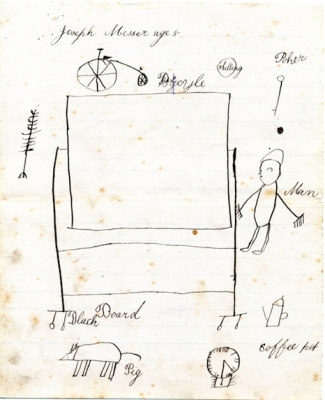 Joseph Messer age 8
Shilling
Poker
Bicycle
Man
Black Board
Coffee pot
Pig